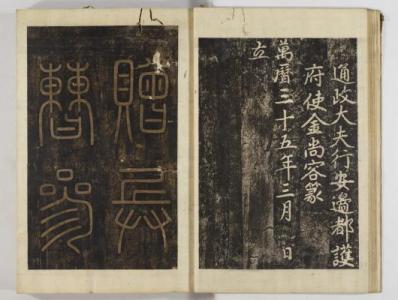 通政大夫行安邊都護
府使金尚容篆
萬曆三十五年三月 日
立
贈兵
曹參